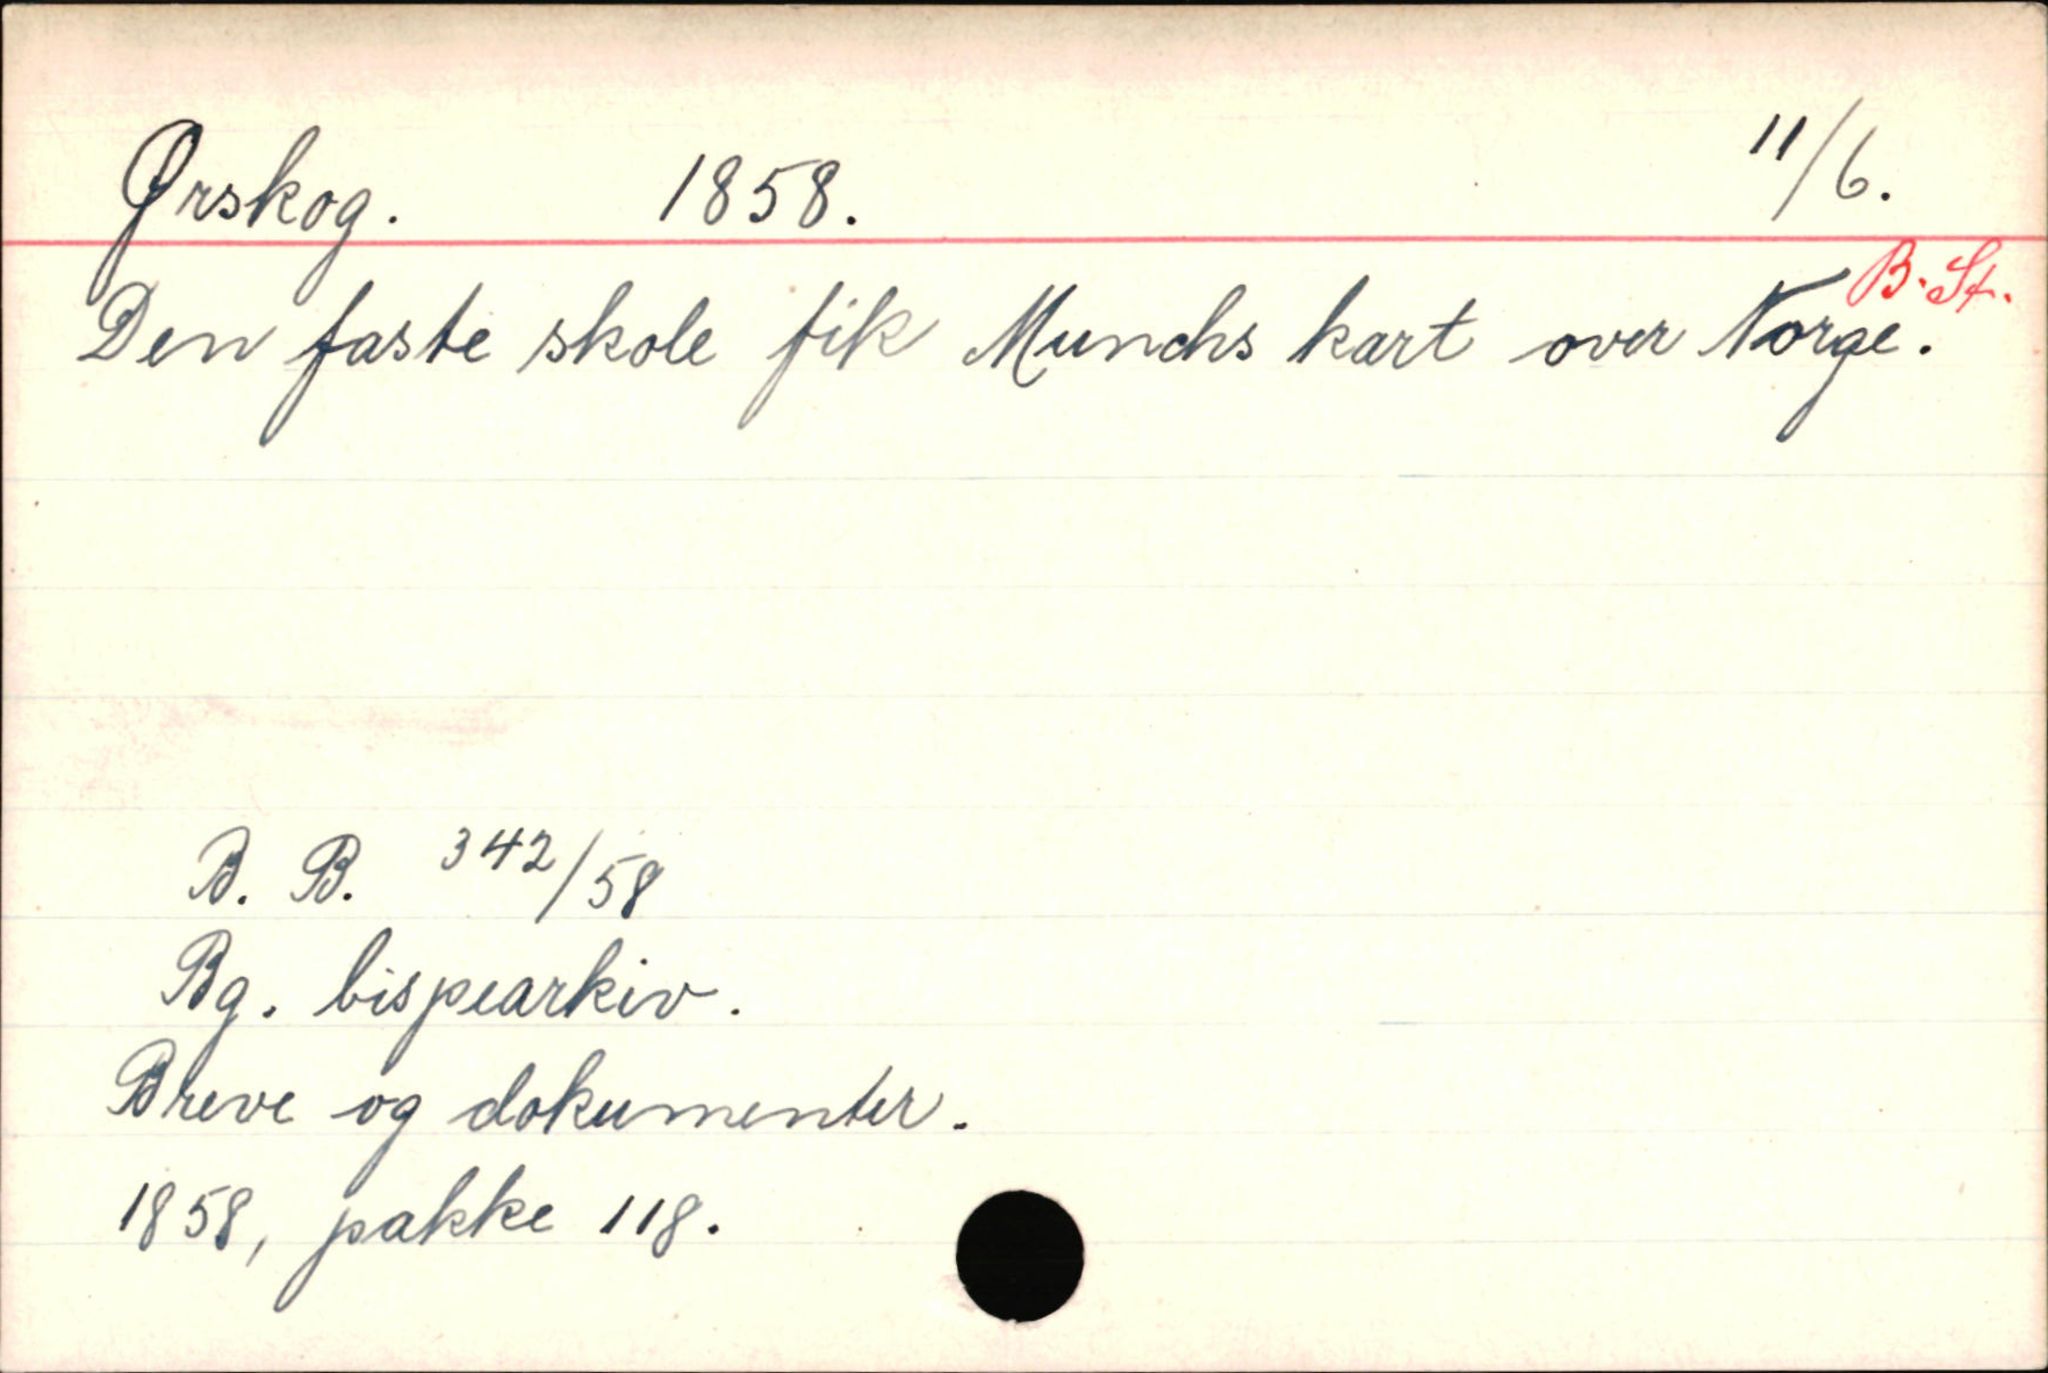 Ørskog. 1858. 11/6.
B. St.
Den faste skole fik Munchs kart over Norge.
B. B. 342/58
Bg. bispearkiv.
Breve og dokumenter.
1858, pakke 118.